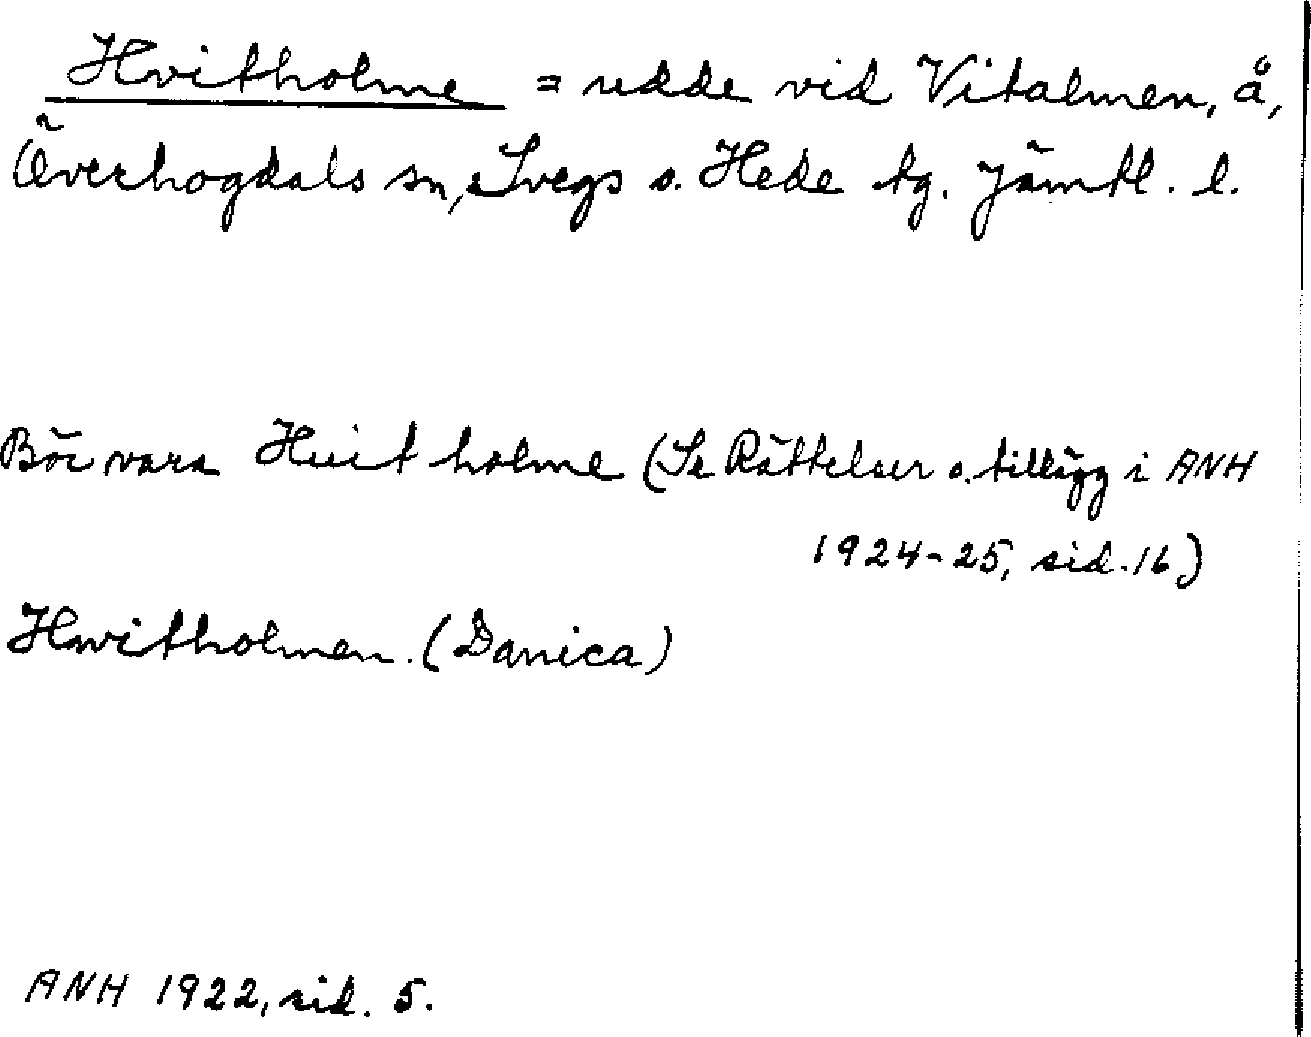 Hvitholme = udde vid Vitalmen, å,
Överhogdals sn, Svegs o. Hede tg. Jämtl. l.
Bör vara Huit holme (Se Rättelser o. tillägg i ANH
1924-25, sid. 16)
Hwitholmen. (Danica)
ANH 1922, sid. 5.